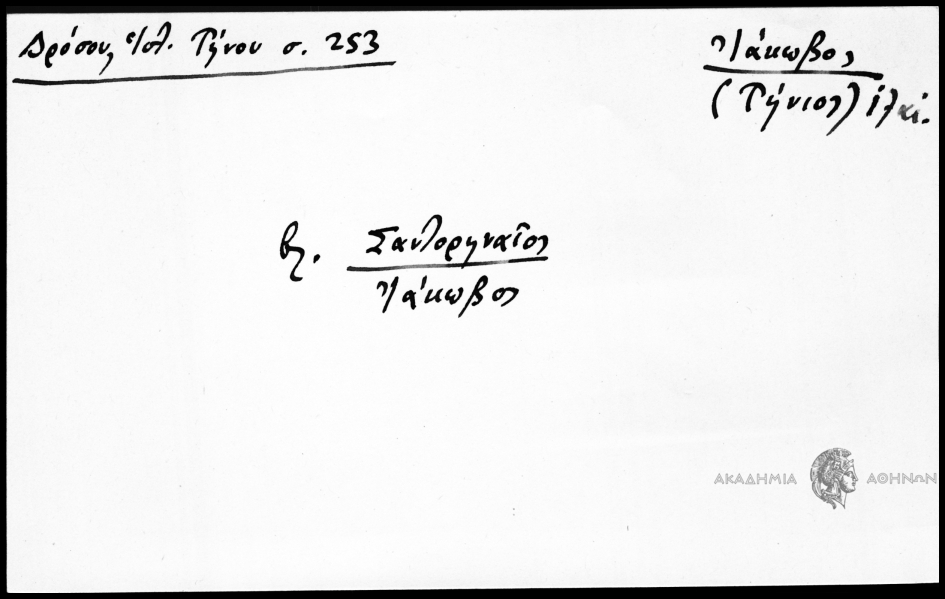 Δρόσου, Ἱστ. Τήνου σ. 253
Ἰάκωβος
(Τήνιος)
βλ. Σαντοριναῖος
Ἰάκωβος
ΑΚΑΔΗΜΙΑ ΑΘΗΝΩΝ